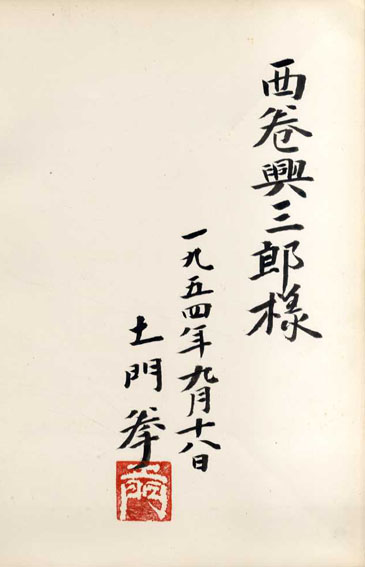 西巻興三郎様
一九五四年九月十八日
土門拳